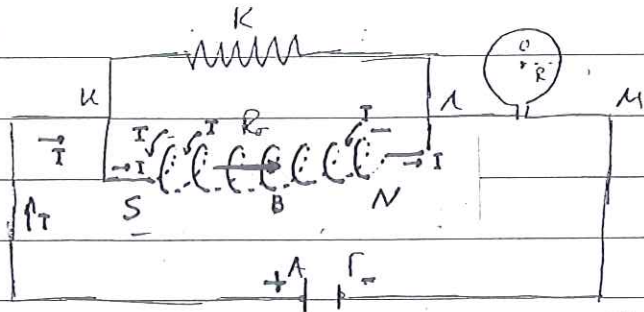 K
O
R
K
Λ
M
I
I
I
Rσ
I
I
I
I
S
B
N
+ A
Γ -